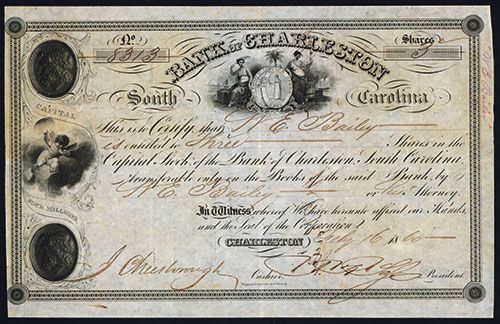 No. 8313 Shares 3
BANK OF CHARLESTON
South Carolina
This is to Certify, that W E Bailey
is entitled to Three Shares in the
Capital Stock of the Bank of Charleston, South Carolina,
Transferable only on the Books of the said Bank, by
W E Bailey or his Attorney.
In Witness whereof We have hereunto affixed our Hands,
and the Seal of the Corporation
CHARLESTON July 16 1860
J Cheesborough Cashier President.
CAPITAL
FOUR MILLIONS